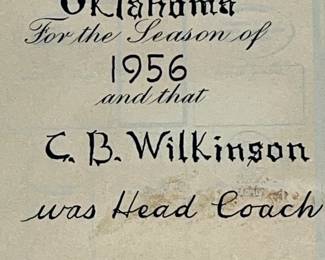 Oklahoma
For the Season of
1956
and that
C. B. Wilkinson
was Head Coach